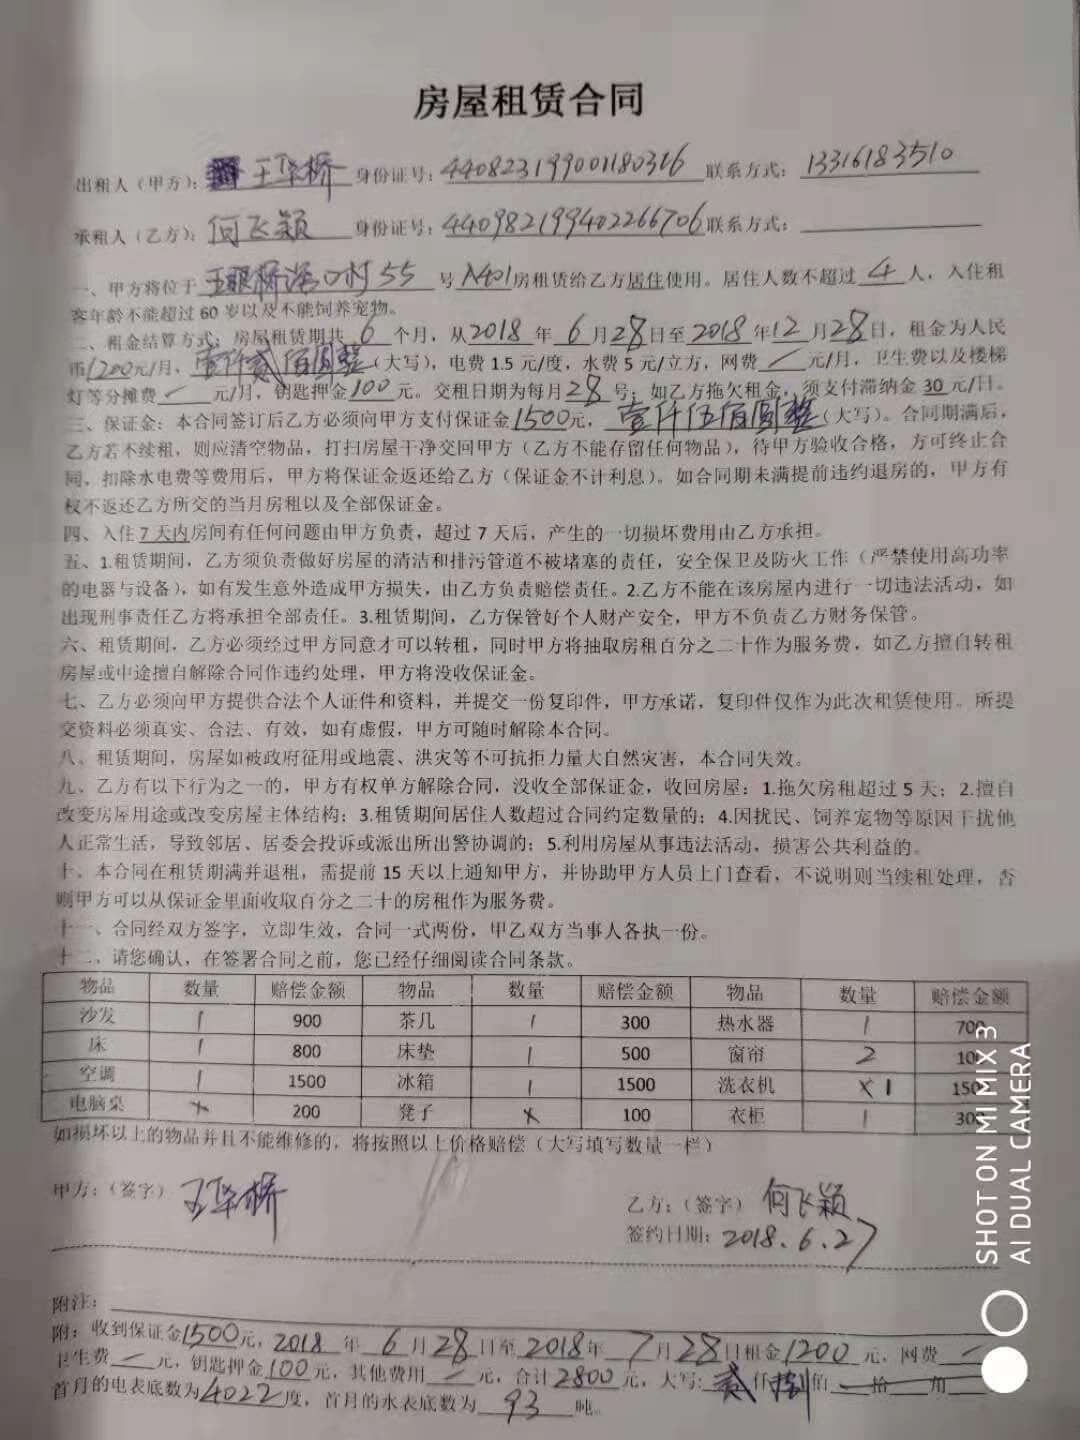 房屋租赁合同
出租人（甲方）：王华桥 身份证号：440823199001180316 联系方式：13316183510
承租人（乙方）：何飞颖 身份证号：440982199402266706 联系方式：
一、甲方将位于 村55 号A401房租赁给乙方居住使用。居住人数不超过 4 人，入住租
客年龄不能超过 60 岁以及不能饲养宠物。
二、租金结算方式：房屋租赁期共 6 个月，从2018 年 6 月28日至2018 年12 月28日，租金为人民
币1200元/月，壹仟贰佰圆整（大写），电费 1.5 元/度，水费 5 元/立方，网费 — 元/月，卫生费以及楼梯
灯等分摊费 — 元/月，钥匙押金100 元。交租日期为每月28 号；如乙方拖欠租金，须支付滞纳金 30 元/日。
三、保证金：本合同签订后乙方必须向甲方支付保证金1500元，壹仟伍佰圆整（大写）。合同期满后，
乙方若不续租，则应清空物品，打扫房屋干净交回甲方（乙方不能存留任何物品），待甲方验收合格，方可终止合
同，扣除水电费等费用后，甲方将保证金返还给乙方（保证金不计利息）。如合同期未满提前违约退房的，甲方有
权不退还乙方所交的当月房租以及全部保证金。
四、入住 7 天内房间有任何问题由甲方负责，超过 7 天后，产生的一切损坏费用由乙方承担。
五、1.租赁期间，乙方须负责做好房屋的清洁和排污管道不被堵塞的责任，安全保卫及防火工作（严禁使用高功率
的电器与设备），如有发生意外造成甲方损失，由乙方负责赔偿责任。2.乙方不能在该房屋内进行一切违法活动，如
出现刑事责任乙方将承担全部责任。3.租赁期间，乙方保管好个人财产安全，甲方不负责乙方财务保管。
六、租赁期间，乙方必须经过甲方同意才可以转租，同时甲方将抽取房租百分之二十作为服务费，如乙方擅自转租
房屋或中途擅自解除合同作违约处理，甲方将没收保证金。
七、乙方必须向甲方提供合法个人证件和资料，并提交一份复印件，甲方承诺，复印件仅作为此次租赁使用。所提
交资料必须真实、合法、有效，如有虚假，甲方可随时解除本合同。
八、租赁期间，房屋如被政府征用或地震、洪灾等不可抗拒力量大自然灾害，本合同失效。
九、乙方有以下行为之一的，甲方有权单方解除合同，没收全部保证金，收回房屋：1.拖欠房租超过 5 天；2.擅自
改变房屋用途或改变房屋主体结构；3.租赁期间居住人数超过合同约定数量的；4.因扰民、饲养宠物等原因干扰他
人正常生活，导致邻居、居委会投诉或派出所出警协调的；5.利用房屋从事违法活动，损害公共利益的。
十、本合同在租赁期满并退租，需提前 15 天以上通知甲方，并协助甲方人员上门查看，不说明则当续租处理，否
则甲方可以从保证金里面收取百分之二十的房租作为服务费。
十一、合同经双方签字，立即生效，合同一式两份，甲乙双方当事人各执一份。
十二、请您确认，在签署合同之前，您已经仔细阅读合同条款。
物品 数量 赔偿金额 物品 数量 赔偿金额 物品 数量 赔偿金额
沙发 1 900 茶几 1 300 热水器 1 700
床 1 800 床垫 1 500 窗帘 2 100
空调 1 1500 冰箱 1 1500 洗衣机 × 1 150
电脑桌 × 200 凳子 × 100 衣柜 1 300
如损坏以上的物品并且不能维修的，将按照以上价格赔偿（大写填写数量一栏）
甲方：（签字） 王华桥
乙方：（签字） 何飞颖
签约日期：2018.6.27
附注：
附：收到保证金1500元，2018 年 6 月28 日至 2018年 7 月28 日租金1200 元，网费 —
卫生费 — 元，钥匙押金100 元，其他费用 — 元，合计2800 元，大写：贰 仟 捌 佰 — 拾 角
首月的电表底数为4022 度，首月的水表底数为 93 吨。
SHOT ON MI MIX 3
AI DUAL CAMERA